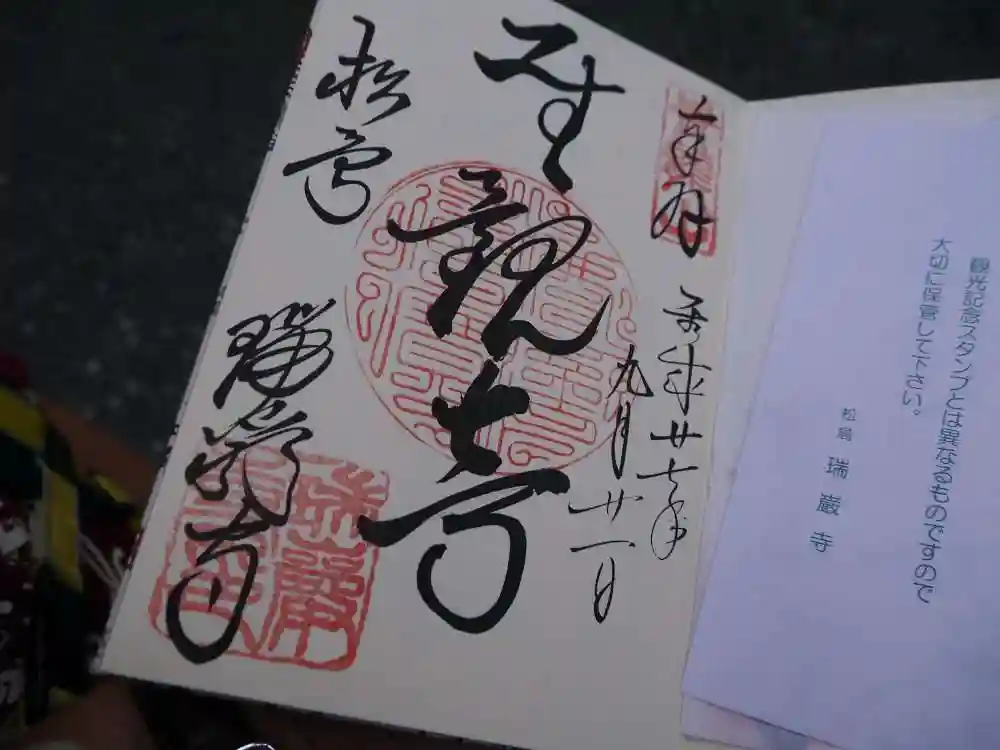 観光記念スタンプとは異なるものですので
大切に保管して下さい。
松島 瑞巌寺
奉拝 平成廿七年
九月廿一日
聖観世音
松島 瑞巌寺